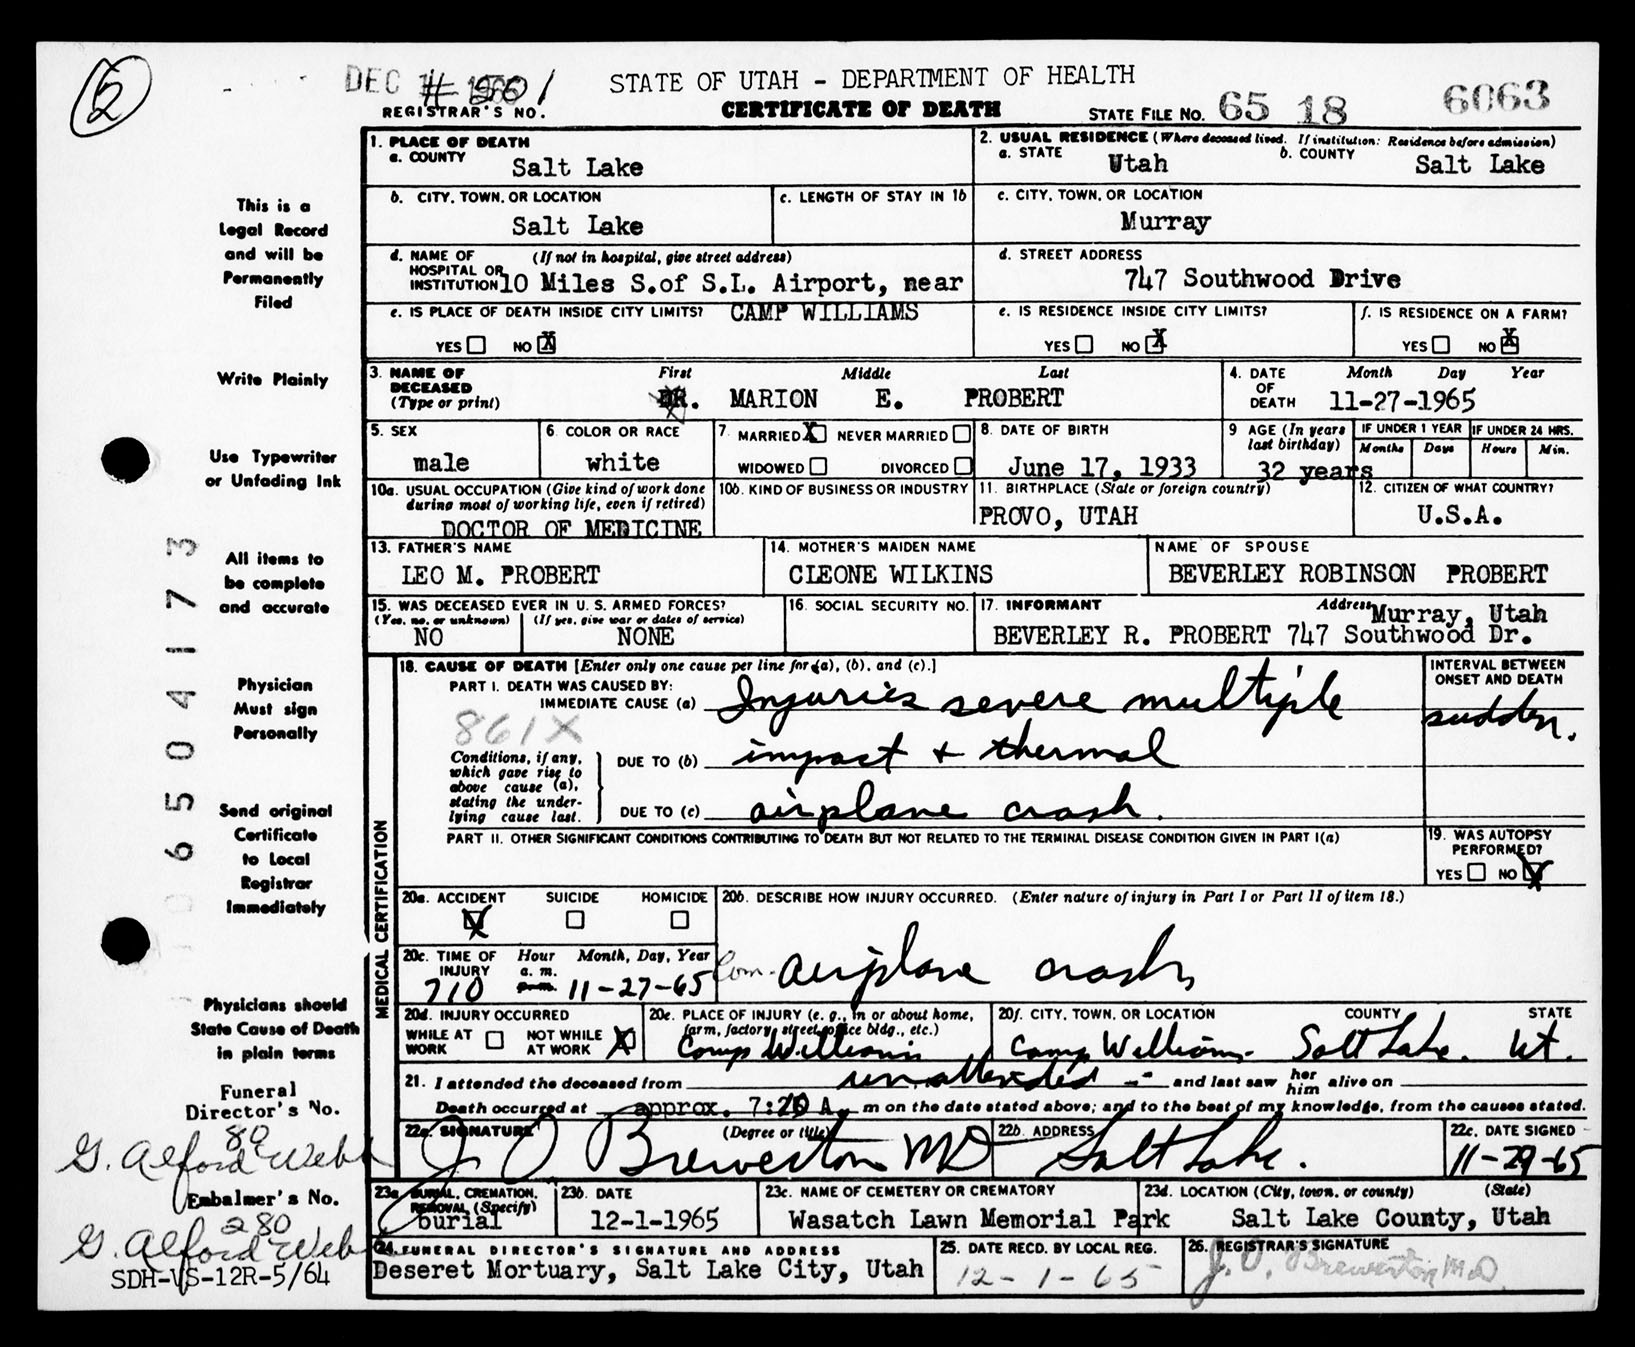 2
DEC
# 501
STATE OF UTAH - DEPARTMENT OF HEALTH
REGISTRAR'S NO.
CERTIFICATE OF DEATH
STATE FILE NO. 65 18 6063
This is a
Legal Record
and will be
Permanently
Filed
Write Plainly
Use Typewriter
or Unfading Ink
All items to
be complete
and accurate
Physician
Must sign
Personally
Send original
Certificate
to Local
Registrar
Immediately
Physicians should
State Cause of Death
in plain terms
Funeral
Director's No.
80
G. Alford Webb
Embalmer's No.
280
G. Alford Webb
SDH-VS-12R-5/64
06504173
1. PLACE OF DEATH
a. COUNTY Salt Lake
2. USUAL RESIDENCE (Where deceased lived. If institution: Residence before admission)
a. STATE Utah b. COUNTY Salt Lake
b. CITY, TOWN, OR LOCATION
Salt Lake
c. LENGTH OF STAY IN 1b
c. CITY, TOWN, OR LOCATION
Murray
d. NAME OF HOSPITAL OR INSTITUTION (If not in hospital, give street address)
10 Miles S.of S.L. Airport, near
CAMP WILLIAMS
d. STREET ADDRESS
747 Southwood Drive
e. IS PLACE OF DEATH INSIDE CITY LIMITS?
YES NO X
e. IS RESIDENCE INSIDE CITY LIMITS?
YES NO X
f. IS RESIDENCE ON A FARM?
YES NO X
3. NAME OF DECEASED (Type or print)
First Middle Last
DR. MARION E. PROBERT
4. DATE OF DEATH Month Day Year
11-27-1965
5. SEX
male
6. COLOR OR RACE
white
7. MARRIED X NEVER MARRIED
WIDOWED DIVORCED
8. DATE OF BIRTH
June 17, 1933
9 AGE (In years last birthday)
32 years
IF UNDER 1 YEAR
Months Days
IF UNDER 24 HRS.
Hours Min.
10a. USUAL OCCUPATION (Give kind of work done
during most of working life, even if retired)
DOCTOR OF MEDICINE
10b. KIND OF BUSINESS OR INDUSTRY
11. BIRTHPLACE (State or foreign country)
PROVO, UTAH
12. CITIZEN OF WHAT COUNTRY?
U.S.A.
13. FATHER'S NAME
LEO M. PROBERT
14. MOTHER'S MAIDEN NAME
CLEONE WILKINS
NAME OF SPOUSE
BEVERLEY ROBINSON PROBERT
15. WAS DECEASED EVER IN U.S. ARMED FORCES?
(Yes, no, or unknown) (If yes, give war or dates of service)
NO NONE
16. SOCIAL SECURITY NO.
17. INFORMANT Address Murray, Utah
BEVERLEY R. PROBERT 747 Southwood Dr.
MEDICAL CERTIFICATION
18. CAUSE OF DEATH [Enter only one cause per line for (a), (b), and (c).]
INTERVAL BETWEEN
ONSET AND DEATH
PART I. DEATH WAS CAUSED BY:
IMMEDIATE CAUSE (a) Injuries severe multiple
sudden.
861X
Conditions, if any,
which gave rise to
above cause (a),
stating the under-
lying cause last.
DUE TO (b) impact + thermal
DUE TO (c) airplane crash.
PART II. OTHER SIGNIFICANT CONDITIONS CONTRIBUTING TO DEATH BUT NOT RELATED TO THE TERMINAL DISEASE CONDITION GIVEN IN PART I(a)
19. WAS AUTOPSY
PERFORMED?
YES NO X
20a. ACCIDENT SUICIDE HOMICIDE
X
20b. DESCRIBE HOW INJURY OCCURRED. (Enter nature of injury in Part I or Part II of item 18.)
Com. airplane crash
20c. TIME OF INJURY Hour Month, Day, Year
a. m.
p. m.
710 11-27-65
20d. INJURY OCCURRED
WHILE AT WORK NOT WHILE AT WORK X
20e. PLACE OF INJURY (e. g., in or about home,
farm, factory, street, office bldg., etc.)
Camp Williams
20f. CITY, TOWN, OR LOCATION COUNTY STATE
Camp Williams. Salt Lake. Ut.
21. I attended the deceased from unattended -- and last saw her him alive on
Death occurred at approx. 7:20 A. m on the date stated above; and to the best of my knowledge, from the causes stated.
22a. SIGNATURE (Degree or title)
J O Brewerton MD
22b. ADDRESS
Salt Lake.
22c. DATE SIGNED
11-29-65
23a. BURIAL, CREMATION,
REMOVAL (Specify)
burial
23b. DATE
12-1-1965
23c. NAME OF CEMETERY OR CREMATORY
Wasatch Lawn Memorial Park
23d. LOCATION (City, town, or county) (State)
Salt Lake County, Utah
24. FUNERAL DIRECTOR'S SIGNATURE AND ADDRESS
Deseret Mortuary, Salt Lake City, Utah
25. DATE RECD. BY LOCAL REG.
12-1-65
26. REGISTRAR'S SIGNATURE
J. O. Brewerton MD